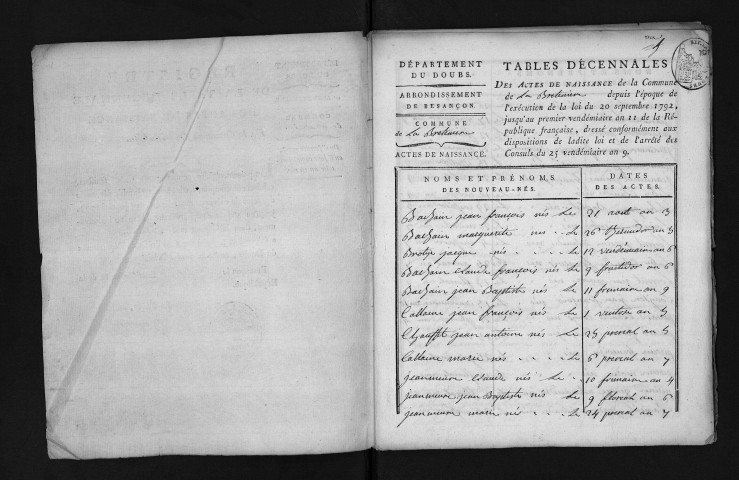 DÉPARTEMENT
DU DOUBS.
ARRONDISSEMENT
DE BESANÇON.
COMMUNE
de La Bretenière
ACTES DE NAISSANCE.
TABLES DÉCENNALES
DES ACTES DE NAISSANCE de la Commune
de La Bretenière depuis l'époque de
l'exécution de la loi du 20 septembre 1792,
jusqu'au premier vendémiaire an 11 de la Ré-
publique française, dressé conformément aux
dispositions de ladite loi et de l'arrêté des
Consuls du 25 vendémiaire an 9.
NOMS ET PRÉNOMS
DES NOUVEAU-NÉS.
DATES
DES ACTES.
jean françois nés le 21 aout an 3
marguerite nés le 26 thermidor an 5
jacque nés le 12 vendémiaire an 6
claude françois nés le 9 fructidor an 6
jean Baptiste nés le 11 frimaire an 9
Callaine jean françois nés le 1 ventose an 5
jean antoine nés le 25 prereal an 5
Callaine marie nés le 6 prereal an 7
claude nés le 10 frimaire an 4
jean Baptiste nés le 9 floreal an 6
marie nés le 24 prereal an 7